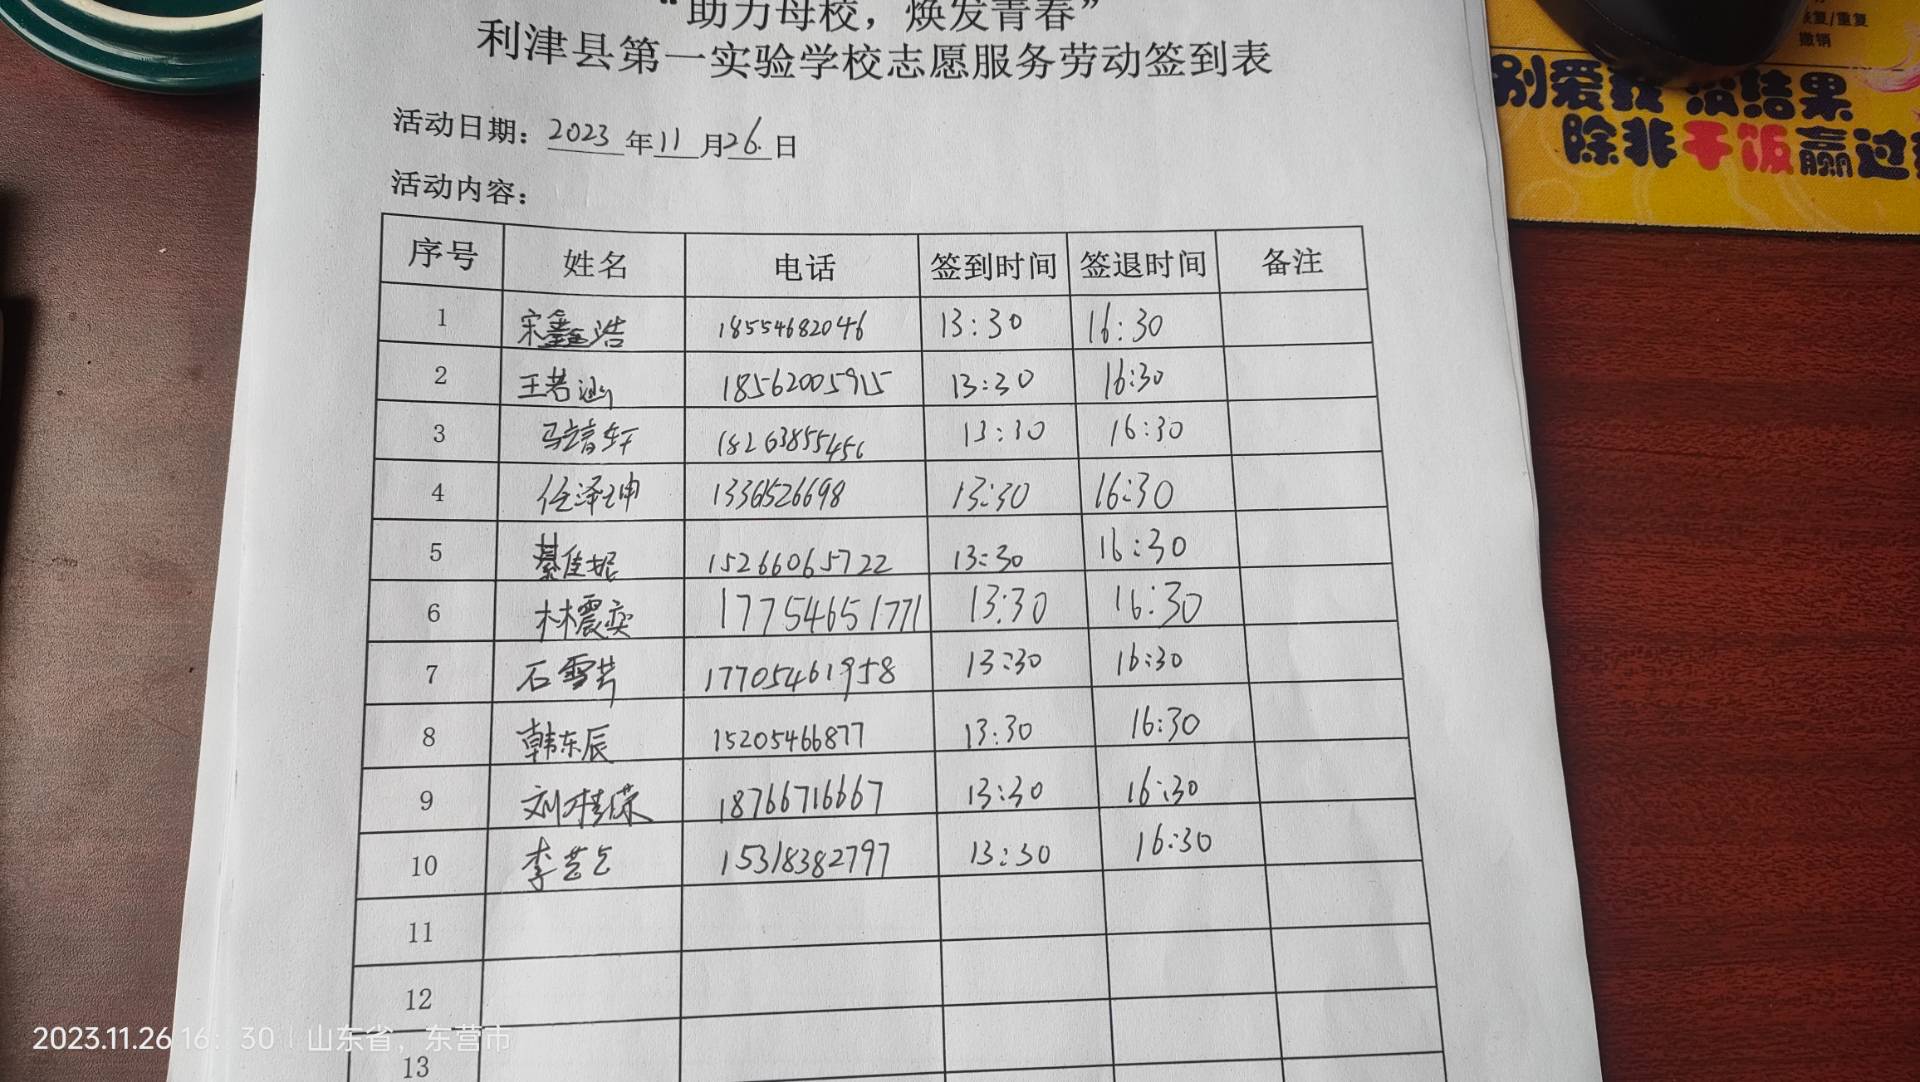 “助力母校，焕发青春”
利津县第一实验学校志愿服务劳动签到表
活动日期：2023年11月26.日
活动内容：
序号 姓名 电话 签到时间 签退时间 备注
1 宋鑫浩 18554682046 13:30 16:30
2 王若涵 18562005915 13:30 16:30
3 马靖轩 18263855456 13:30 16:30
4 任泽坤 13361526698 13:30 16:30
5 綦佳妮 15266065722 13:30 16:30
6 林震奕 17754651771 13:30 16:30
7 石雪芹 17705461958 13:30 16:30
8 韩东辰 15205466877 13:30 16:30
9 刘桂荣 18766716667 13:30 16:30
10 李艺 15318382797 13:30 16:30
11
12
13
恢复/重复
撤销
别爱我 没结果
除非干饭赢过
2023.11.26 16：30 | 山东省，东营市